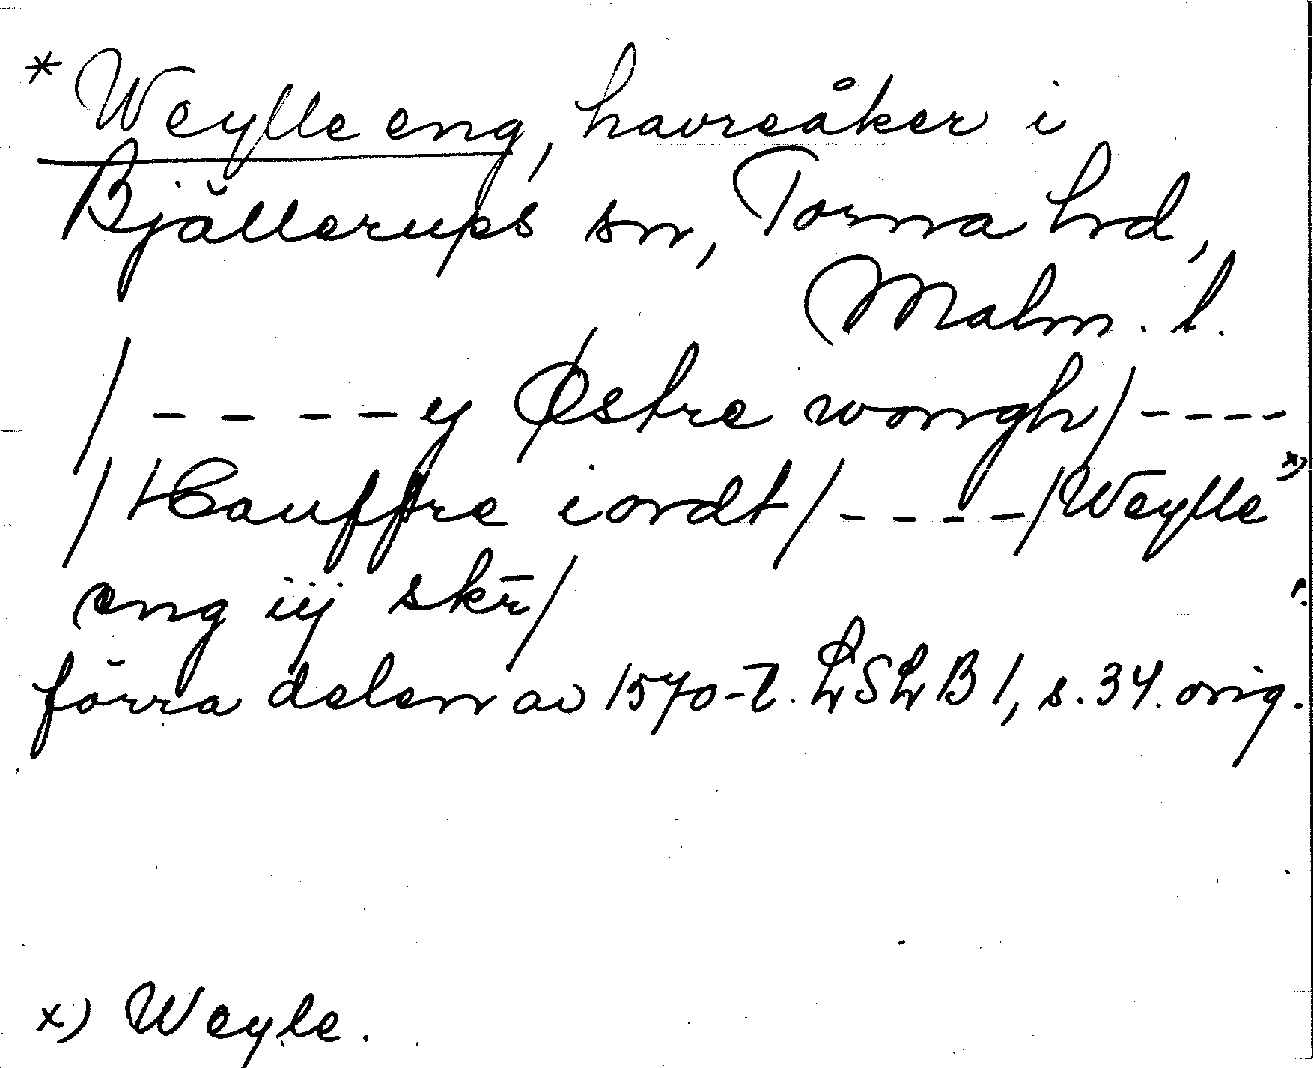 * Weylle eng, havreåker i
Bjällerups sn, Torna hd,
Malm. l.
/ - - - - y Østre wongh / - - - -
/ Hauffre iordt / - - - - / Weylle x)
eng iij skr̄ /
förra delen av 1570-t. LSLB 1, s. 34. orig.
x) Weyle.